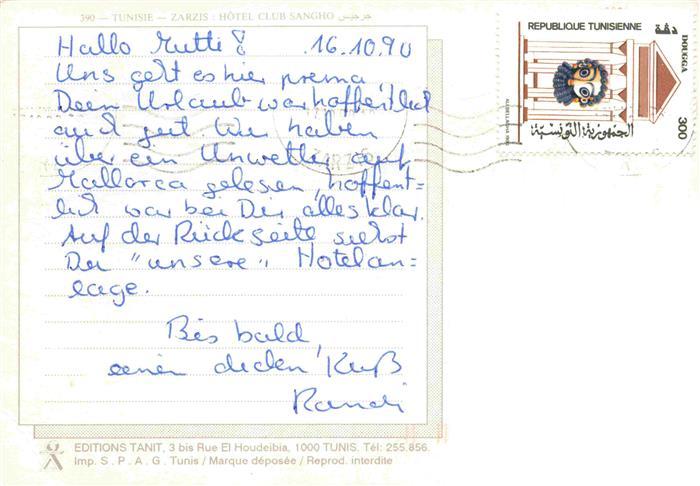 390 - TUNISIE - ZARZIS : HÔTEL CLUB SANGHO جرجيس
Hallo Mutti! 16.10.90
Uns geht es hier prima,
Dein Urlaub war hoffentlich
auch gut. Wir haben
über ein Unwetter auf
Mallorca gelesen, hoffent=
lich war bei Dir alles klar.
Auf der Rückseite siehst
Du "unsere" Hotelan=
lage.
Bis bald,
einen dicken Kuß
REPUBLIQUE TUNISIENNE
دقة
DOUGGA
300
الجمهورية التونسية
ZARZIS
EDITIONS TANIT, 3 bis Rue El Houdeibia, 1000 TUNIS. Tél: 255.856.
Imp. S. P. A. G. Tunis / Marque déposée / Reprod. interdite